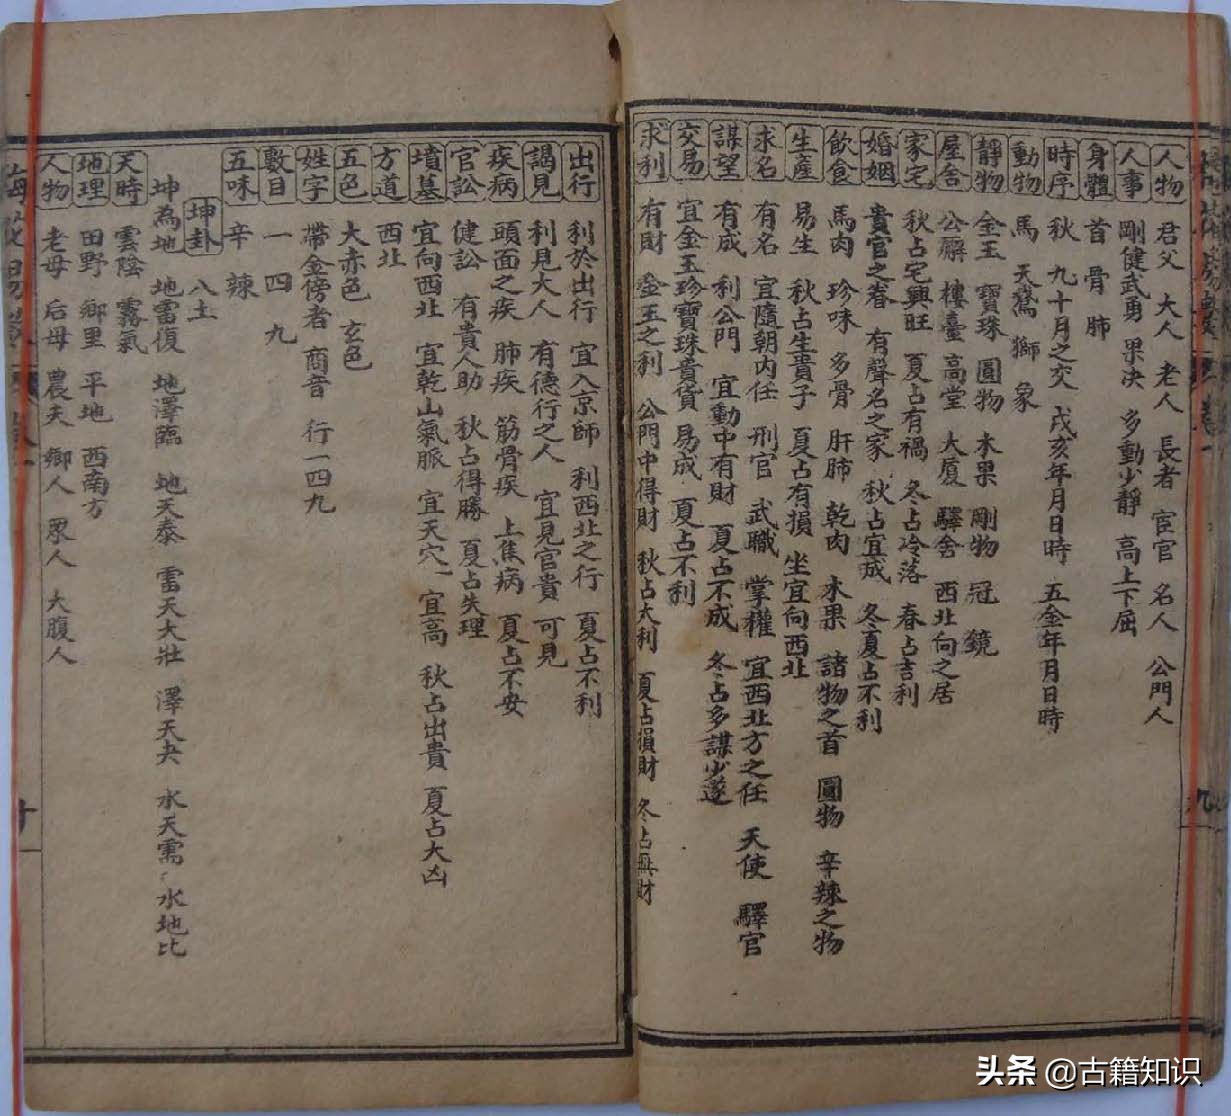 人物 君父 大人 老人 長者 宦官 名人 公門人
人事 剛健武勇 果决 多動少靜 高上下屈
身體 首 骨 肺
時序 秋 九十月之交 戌亥年月日時 五金年月日時
動物 馬 天鵞 獅 象
靜物 金玉 寶珠 圓物 木果 剛物 冠 鏡
屋舍 公廨 樓臺 高堂 大厦 驛舍 西北向之居
家宅 秋占宅興旺 夏占有禍 冬占冷落 春占吉利
婚姻 貴官之眷 有聲名之家 秋占宜成 冬夏占不利
飲食 馬肉 珍味 多骨 肝肺 乾肉 木果 諸物之首 圓物 辛辣之物
生產 易生 秋占生貴子 夏占有損 坐宜向西北
求名 有名 宜隨朝内任 刑官 武職 掌權 宜西北方之任 天使 驛官
謀望 有成 利公門 宜動中有財 夏占不成 冬占多謀少遂
交易 宜金玉珍寶珠貴貨 易成 夏占不利
求利 有財 金玉之利 公門中得財 秋占大利 夏占損財 冬占無財
九
出行 利於出行 宜入京師 利西北之行 夏占不利
謁見 利見大人 有德行之人 宜見官貴 可見
疾病 頭面之疾 肺疾 筋骨疾 上焦病 夏占不安
官訟 健訟 有貴人助 秋占得勝 夏占失理
墳墓 宜向西北 宜乾山氣脈 宜天穴 宜高 秋占出貴 夏占大凶
方道 西北
五色 大赤色 玄色
姓字 帶金傍者 商音 行一四九
數目 一 四 九
五味 辛 辣
坤卦 八土
坤為地 地雷復 地澤臨 地天泰 雷天大壯 澤天夬 水天需 水地比
天時 雲陰 霧氣
地理 田野 鄉里 平地 西南方
人物 老母 后母 農夫 鄉人 眾人 大腹人
十
头条 @古籍知识